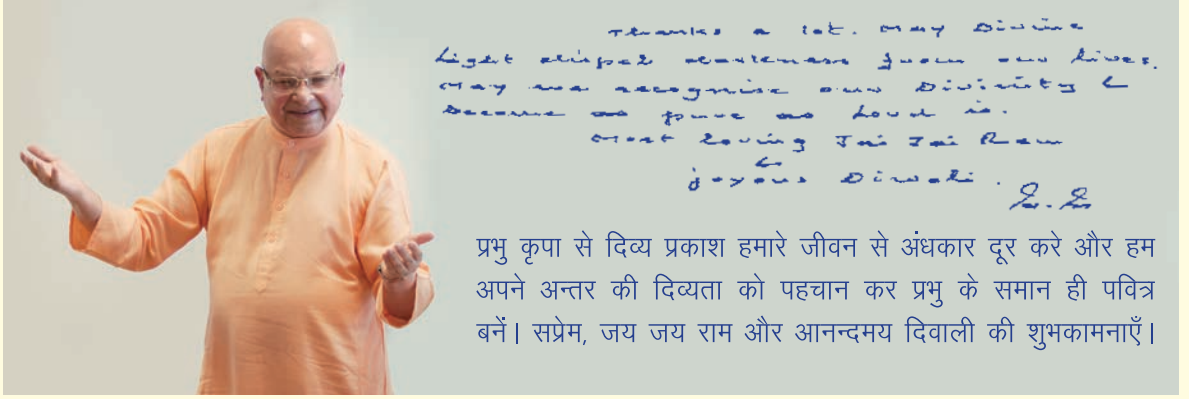 Thanks a lot. May Divine
Light dispel darkness from our lives.
May we recognise our Divinity &
become as pure as Lord is.
Most loving Jai Jai Ram
&
joyous Diwali.
प्रभु कृपा से दिव्य प्रकाश हमारे जीवन से अंधकार दूर करे और हम
अपने अन्तर की दिव्यता को पहचान कर प्रभु के समान ही पवित्र
बनें। सप्रेम, जय जय राम और आनन्दमय दिवाली की शुभकामनाएँ।